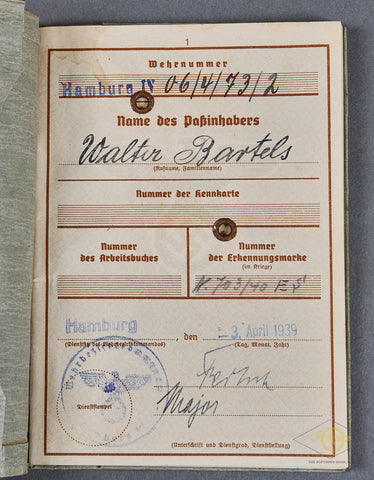 1
Wehrnummer
Hamburg IV 06/4/73/2
Name des Paßinhabers
Walter Bartels
(Rufname, Familienname)
Nummer der Kennkarte
Nummer des Arbeitsbuches
Nummer der Erkennungsmarke
(im Kriege)
N. 703/40
Hamburg, den -3. April 1939
(Dienstsitz des Wehrbezirkskommandos) (Tag, Monat, Jahr)
Dienststempel
Major
(Unterschrift und Dienstgrad, Dienststellung)